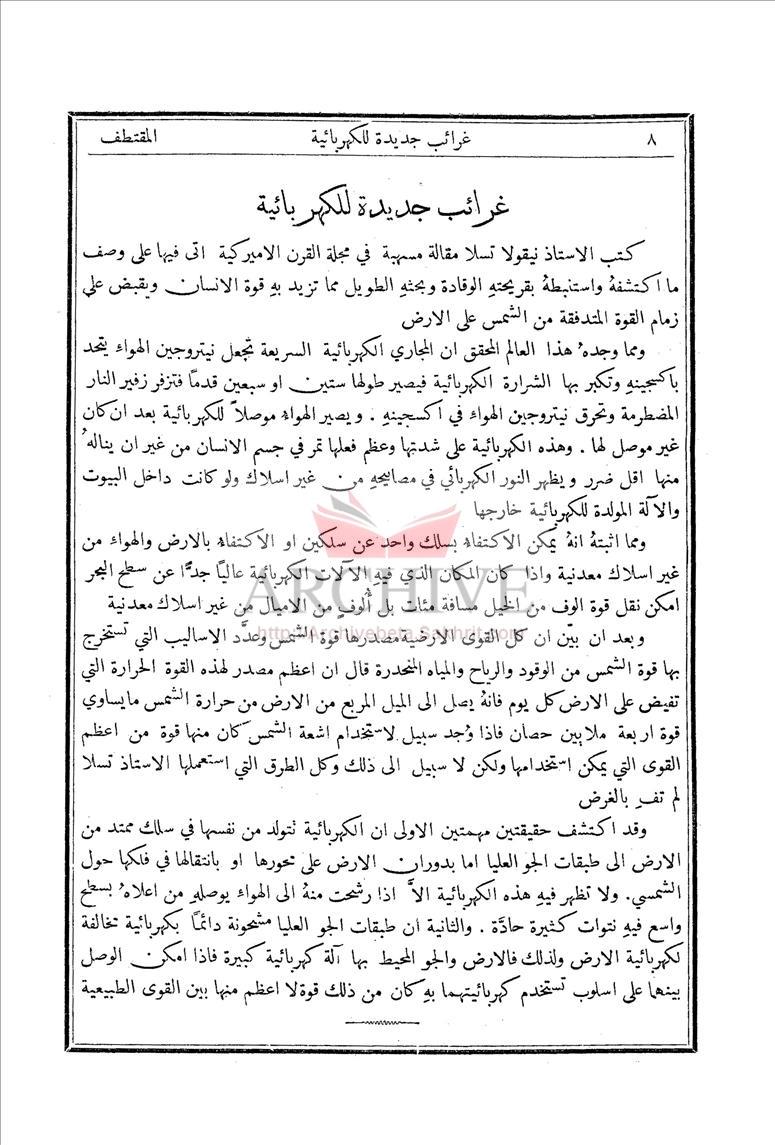 ٨ غرائب جديدة للكهربائية المقتطف
غرائب جديدة للكهربائية
كتب الاستاذ نيقولا تسلا مقالة مسهبة في مجلة القرن الاميركية اتى فيها على وصف
ما اكتشفهُ واستنبطهُ بقريحتهِ الوقادة وبحثهِ الطويل مما تزيد بهِ قوة الانسان ويقبض على
زمام القوة المتدفقة من الشمس على الارض
ومما وجدهُ هذا العالم المحقق ان المجاري الكهربائية السريعة تجعل نيتروجين الهواء يتحد
باكسجينهِ وتكبر بها الشرارة الكهربائية فيصير طولها ستين او سبعين قدمًا فتزفر زفير النار
المضطرمة وتحرق نيتروجين الهواء في اكسجينهِ . ويصير الهواء موصلاً للكهربائية بعد ان كان
غير موصل لها . وهذه الكهربائية على شدتها وعظم فعلها تمر في جسم الانسان من غير ان ينالهُ
منها اقل ضرر ويظهر النور الكهربائي في مصابيحهِ من غير اسلاك ولو كانت داخل البيوت
والآلة المولدة للكهربائية خارجها
ومما اثبتهُ انهُ يمكن الاكتفاء بسلك واحد عن سلكين او الاكتفاء بالارض والهواء من
غير اسلاك معدنية واذا كان المكان الذي فيهِ الآلات الكهربائية عاليًا جدًّا عن سطح البحر
امكن نقل قوة الوف من الخيل مسافة مئات بل أُلوف من الاميال من غير اسلاك معدنية
ARCHIVE
http://Archivebeta.Sakhrit.com
وبعد ان بيّن ان كل القوى الارضية مصدرها قوة الشمس وعدَّد الاساليب التي تستخرج
بها قوة الشمس من الوقود والرياح والمياه المنحدرة قال ان اعظم مصدر لهذه القوة الحرارة التي
تفيض على الارض كل يوم فانهُ يصل الى الميل المربع من الارض من حرارة الشمس ما يساوي
قوة اربعة ملايين حصان فاذا وُجد سبيل لاستخدام اشعة الشمس كان منها قوة من اعظم
القوى التي يمكن استخدامها ولكن لا سبيل الى ذلك وكل الطرق التي استعملها الاستاذ تسلا
لم تفِ بالغرض
وقد اكتشف حقيقتين مهمتين الاولى ان الكهربائية تتولد من نفسها في سلك ممتد من
الارض الى طبقات الجو العليا اما بدوران الارض على محورها او بانتقالها في فلكها حول
الشمس. ولا تظهر فيهِ هذه الكهربائية الاَّ اذا رشحت منهُ الى الهواء بوصلهِ من اعلاهُ بسطح
واسع فيهِ نتوات كثيرة حادَّة . والثانية ان طبقات الجو العليا مشحونة دائمًا بكهربائية مخالفة
لكهربائية الارض ولذلك فالارض والجو المحيط بها آلة كهربائية كبيرة فاذا امكن الوصل
بينهما على اسلوب تستخدم كهربائيتهما بهِ كان من ذلك قوة لا اعظم منها بين القوى الطبيعية